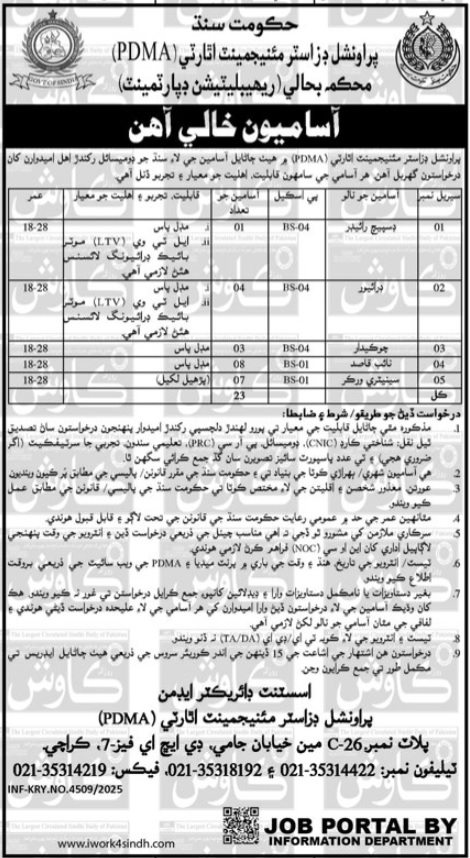 حڪومت سنڌ
پراونشل ڊزاسٽر مئنيجمينٽ اٿارٽي (PDMA)
محڪمه بحالي (ريهيبليٽيشن ڊپارٽمينٽ)
GOVT OF SINDH
آساميون خالي آهن
پراونشل ڊزاسٽر مئنيجمينٽ اٿارٽي (PDMA) ۾ هيٺ ڄاڻايل آسامين جي لاءِ سنڌ جو ڊوميسائل رکندڙ اهل اميدوارن کان
درخواستون گهربل آهن. هر آسامي جي سامهون قابليت، اهليت جو معيار ۽ تجربو ڏنل آهي.
سيريل نمبر آسامين جو نالو پي اسڪيل آسامين جو تعداد قابليت، تجربو ۽ اهليت جو معيار عمر
01 ڊسپيچ رائيڊر BS-04 01 i. مڊل پاس 18-28
ii. ايل ٽي وي (LTV) موٽر
بائيڪ ڊرائيونگ لائسنس
هئڻ لازمي آهي.
02 ڊرائيور BS-04 04 i. مڊل پاس 18-28
ii. ايل ٽي وي (LTV) موٽر
بائيڪ ڊرائيونگ لائسنس
هئڻ لازمي آهي.
03 چوڪيدار BS-04 03 مڊل پاس 18-28
04 نائب قاصد BS-01 08 مڊل پاس 18-28
05 سينيٽري ورڪر BS-01 07 (پڙهيل لکيل) 18-28
ڪل 23
درخواست ڏيڻ جو طريقو/ شرط ۽ ضابطا:
1. مذڪوره مٿي ڄاڻايل قابليت جي معيار تي پورو لهندڙ دلچسپي رکندڙ اميدوار پنهنجون درخواستون سان تصديق
ٿيل نقل: شناختي ڪارڊ (CNIC)، ڊوميسائل، پي آر سي (PRC)، تعليمي سندون، تجربي جا سرٽيفڪيٽ (اگر
ضروري هجي) ۽ ٽي عدد پاسپورٽ سائيز تصويرن سان گڏ جمع ڪرائي سگهن ٿا.
2. هي آساميون شهري/ ٻهراڙي ڪوٽا جي بنياد تي ۽ حڪومت سنڌ جي مقرر قانونن/ پاليسي جي مطابق پُر ڪيون وينديون
3. عورتن، معذور شخصن ۽ اقليتن جي لاءِ مختص ڪوٽا تي حڪومت سنڌ جي پاليسي/ قانونن جي مطابق عمل
ڪيو ويندو.
4. مٿانهين عمر جي حد ۾ عمومي رعايت حڪومت سنڌ جي قانونن جي تحت لاڳو ۽ قابل قبول هوندي.
5. سرڪاري ملازمن کي مشورو ٿو ڏجي ته اهي مناسب چينل جي ذريعي درخواست ڏين ۽ انٽرويو جي وقت پنهنجي
لاڳاپيل اداري کان اين او سي (NOC) فراهم ڪرڻ لازمي هوندي.
6. ٽيسٽ/ انٽرويو جي تاريخ، هنڌ ۽ وقت جي باري ۾ پرنٽ ميڊيا ۽ PDMA جي ويب سائيٽ جي ذريعي بروقت
اطلاع ڪيو ويندو
7. بغير دستاويزات يا نامڪمل دستاويزات وارا ۽ ڊيڊلائين کانپوءِ جمع ڪرايل درخواستن تي غور نه ڪيو ويندو. هڪ
کان وڌيڪ آسامين جي لاءِ درخواستون ڏيڻ وارا اميدوارن کي هر آسامي جي لاءِ عليحده درخواست ڏيڻي هوندي ۽
لفافي جي مٿان آسامي جو نالو لکڻ لازمي آهي.
8. ٽيسٽ ۽ انٽرويو جي لاءِ ڪوبه ٽي اي/ڊي اي (TA/DA) نه ڏنو ويندو
9. درخواستون هن اشتهار جي اشاعت جي 15 ڏينهن جي اندر ڪوريئر سروس جي ذريعي هيٺ ڄاڻايل ايڊريس تي
مڪمل طور تي جمع ڪرايون وڃن.
اسسٽنٽ ڊائريڪٽر ايڊمن
پراونشل ڊزاسٽر مئنيجمينٽ اٿارٽي (PDMA)
پلاٽ نمبر C-26 مين خيابان جامي، ڊي ايڇ اي فيز-7، ڪراچي.
ٽيليفون نمبر: 021-35314422 ۽ 021-35318192، فيڪس: 021-35314219
INF-KRY.NO.4509/2025
www.iwork4sindh.com
JOB PORTAL BY
INFORMATION DEPARTMENT